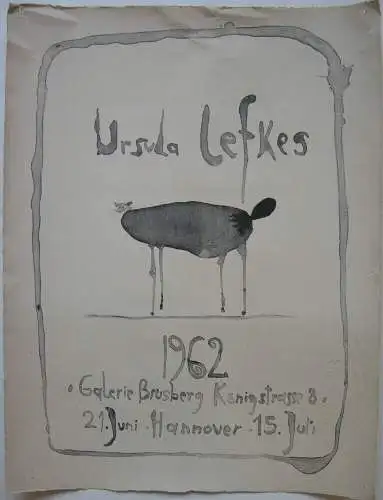 Ursula Lefkes
1962
• Galerie Brusberg Königstrasse 8 •
21. Juni • Hannover • 15. Juli